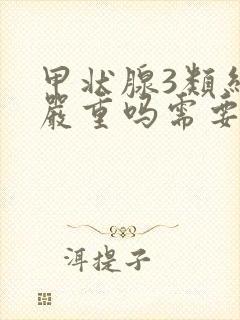 甲状腺3类
严重吗需要
洱提子